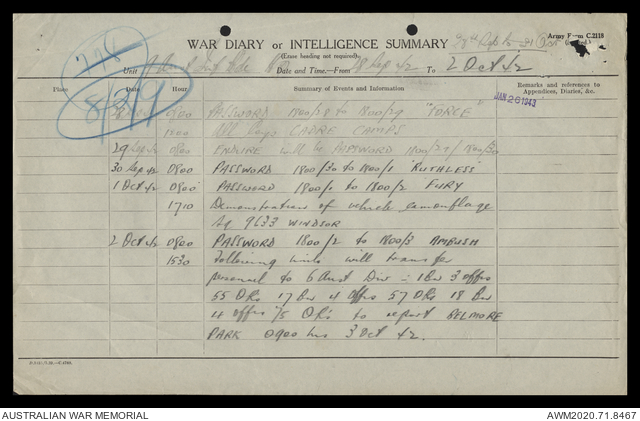 728
8/3/9
WAR DIARY or INTELLIGENCE SUMMARY
(Erase heading not required).
Army Form C.2118
Unit Date and Time.—From 28 Sep 42 To 2 Oct 42
Place Date Hour Summary of Events and Information Remarks and references to
Appendices, Diaries, &c.
JAN 20 1943
0800 PASSWORD 1800/28 to 1800/29 "FORCE"
1200 CADRE CAMPS
29 Sep 0800 ENQUIRE will be PASSWORD 1800/29/1800/30
30 Sep 42 0800 PASSWORD 1800/30 to 1800/1 "RUTHLESS"
1 Oct 42 0800 PASSWORD 1800/1 to 1800/2 FURY
1710 Demonstration of vehicle camouflage
9633 WINDSOR
2 Oct 42 0800 PASSWORD 1800/2 to 1800/3 AMBUSH
1530 Following units will transfer
personnel to 6 Aust Div : 1 Bn 3 offrs
55 ORs 17 Bn 4 offrs 57 ORs 18 Bn
4 offrs 75 ORs to report BELMORE
PARK 0900 hrs 3 Oct 42.
AUSTRALIAN WAR MEMORIAL
AWM2020.71.8467